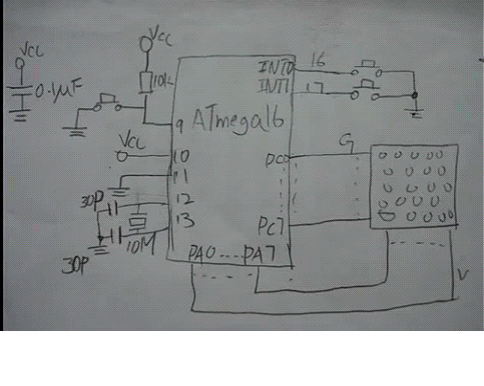 Vcc
Vcc
0.1µF
10k
INT0 16
INT1 17
9
ATmega16
Vcc
10
11
PC0
G
30P
12
13
10M
30P
PC7
PA0....PA7
V